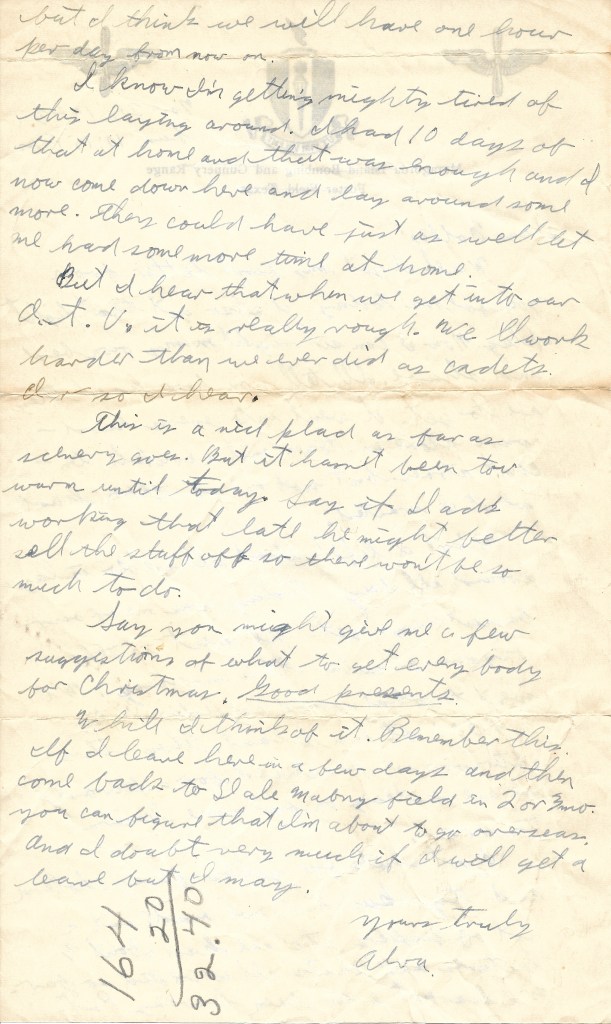 but I think we will have one hour
per day from now on.
I know I'm getting mighty tired of
this laying around. I had 10 days of
that at home and that was enough and I
now come down here and lay around some
more. They could have just as well let
me had some more time at home.
But I hear that when we get into our
O.T.U. it is really rough. We'll work
harder than we ever did as cadets.
Or so I hear.
This is a nice place as far as
scenery goes. But it hasn't been too
warm until today. Say if Dads
working that late he might better
sell the stuff off so there won't be so
much to do.
Say you might give me a few
suggestions of what to get every body
for Christmas. Good presents.
While I think of it. Remember this.
If I leave here in a few days and then
come back to Dale Mabry field in 2 or 3 mo.
you can figure that I'm about to go overseas.
And I doubt very much if I will get a
leave but I may.
Yours truly
Alva.
164
20
32.40